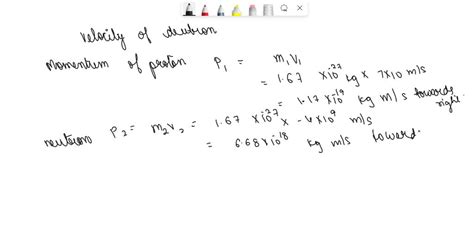 Velocity of deutron
Momentum of proton P₁ = m₁V₁
= 1.67 × 10⁻²⁷ kg × 7×10 m/s
= 1.17 × 10⁻¹⁹ kg m/s towards right
neutron P₂ = m₂v₂ = 1.67 × 10⁻²⁷ × -4×10⁹ m/s
= 6.68 × 10⁻¹⁸ kg m/s toward